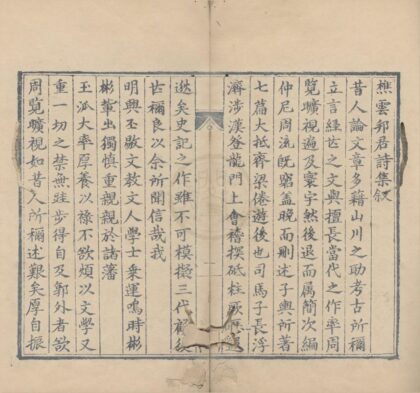 樵雲郭君詩集叙
昔人論文章多藉山川之助考古所稱
立言經世之文與擅長當代之作率周
覽曠視遍及寰宇然後退而属簡次編
仲尼周流旣窮蓋晚而刪述子輿所著
七篇大抵齊梁倦遊後也司馬子長浮
濟涉漢登龍門上會稽探砥柱
逖矣史記之作雖不可模擬三代顧後
世稱良以余所聞信哉我
明興五玉敎文人學士乗運鳴時彬
彬輩出獨慎重親親於諸藩
玉派大率厚養以祿不欲煩以文學又
重一切之禁無跬步得自及郭外者欲
周覽曠視如昔人所稱述艱矣厚自振